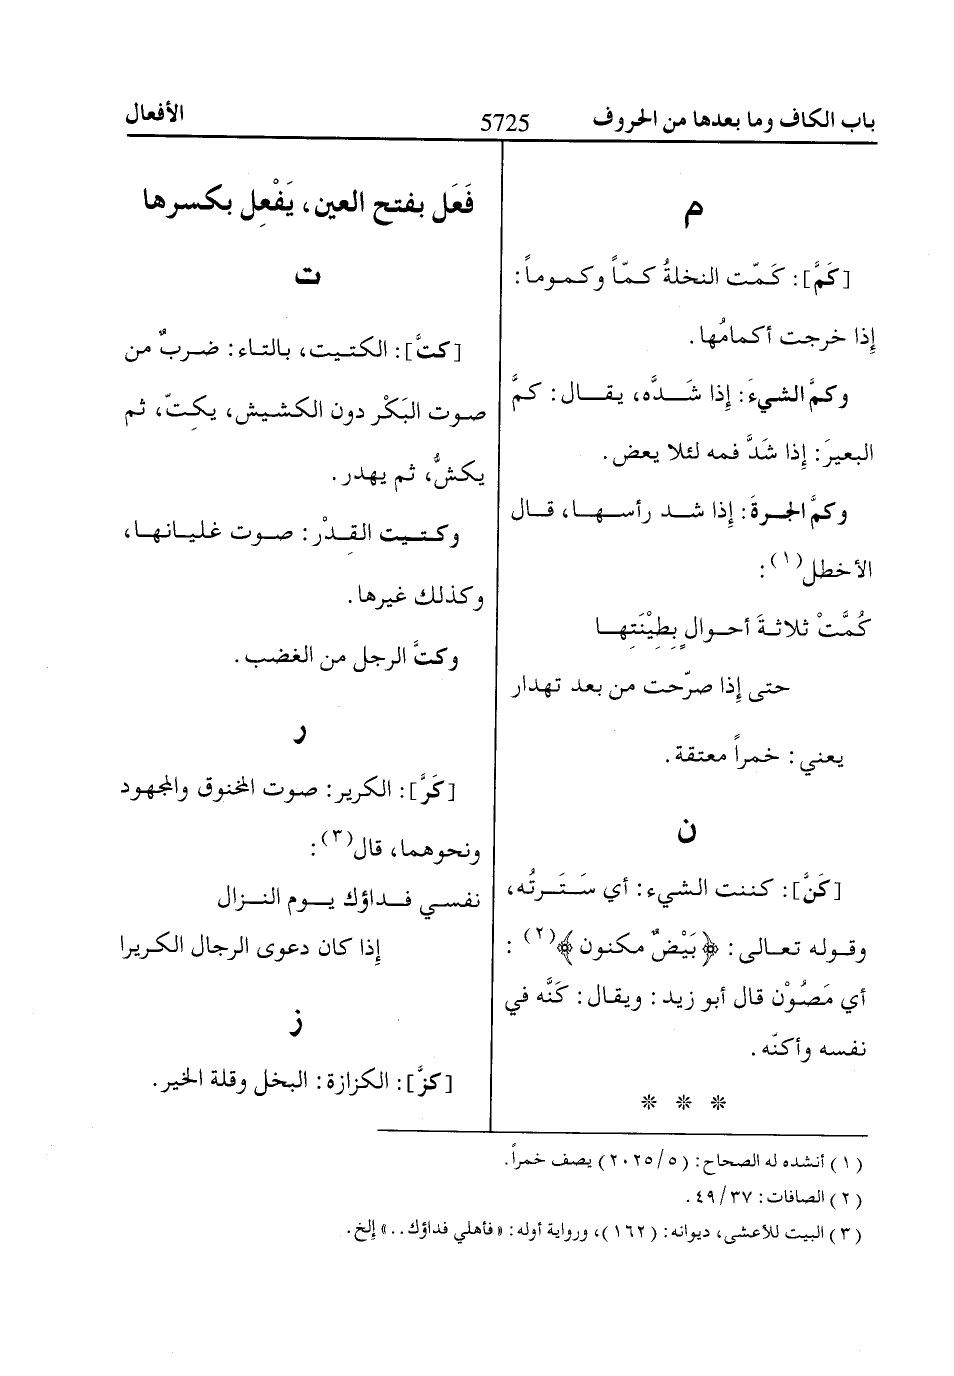 باب الكاف وما بعدها من الحروف
5725
الأفعال
م
[كَمَّ]: كَمّت النخلةُ كمّاً وكموماً:
إذا خرجت أكمامُها.
وكمَّ الشيءَ: إذا شَدَّه، يقال: كمَّ
البعيرَ: إذا شَدَّ فمه لئلا يعض.
وكمَّ الجرةَ: إذا شد رأسها، قال
الأخطل(١):
كُمَّتْ ثلاثةَ أحوالٍ بِطِيْنَتِها
حتى إذا صرّحت من بعد تهدار
يعني: خمراً معتقة.
ن
[كَنَّ]: كننت الشيء: أي سَتَرتُه،
وقوله تعالى: ﴿بَيْضٌ مكنون﴾(٢):
أي مَصُوْن قال أبو زيد: ويقال: كَنَّه في
نفسه وأكنّه.
* * *
فَعَل بفتح العين، يَفْعِل بكسرها
ت
[كتَّ]: الكتيت، بالتاء: ضربٌ من
صوت البَكْر دون الكشيش، يكِتّ، ثم
يكشُّ، ثم يهدر.
وكتيت القِدْر: صوت غليانها،
وكذلك غيرها.
وكتَّ الرجل من الغضب.
ر
[كَرَّ]: الكرير: صوت المخنوق والمجهود
ونحوهما، قال(٣):
نفسي فداؤك يوم النزال
إذا كان دعوى الرجال الكريرا
ز
[كزَّ]: الكزازة: البخل وقلة الخير.
(١) أنشده له الصحاح: (٢٠٢٥/٥) يصف خمراً.
(٢) الصافات: ٤٩/٣٧.
(٣) البيت للأعشى، ديوانه: (١٦٢)، ورواية أوله: «فأهلي فداؤك..» إلخ.